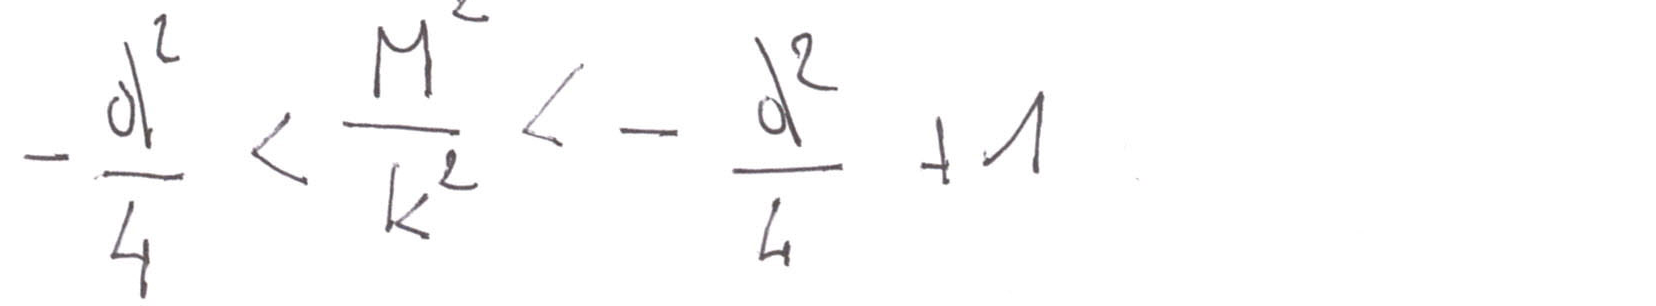 -\frac{d^2}{4} < \frac{M^2}{k^2} < -\frac{d^2}{4} + 1